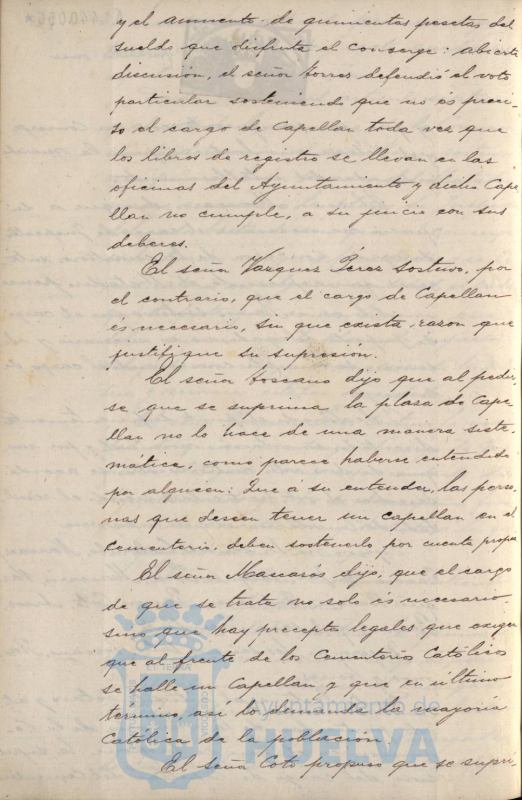 y el aumento de quinientas pesetas del
sueldo que disfruta el conserge: abierta
discusión, el señor Torres defendió el voto
particular sosteniendo que no és preci-
so el cargo de Capellan toda vez que
los libros de registro se llevan en las
oficinas del Ayuntamiento y dicho Cape-
llan no cumple, a su juicio con sus
deberes.
El señor Vazquez Perez sostuvo, por
el contrario, que el cargo de Capellan
és necesario, sin que exista razon que
justifique su supresión.
El señor Toscano dijo que al pedir
se que se suprima la plaza de Cape-
llan no lo hace de una manera siste-
mática, como parece haberse entendido
por alguien: Que á su entender, las perso-
nas que deseen tener un capellan en el
cementerio, deben sostenerlo por cuenta propia
El señor Mascarós dijo, que el cargo
de que se trata no solo és necesario
sino que hay preceptos legales que exigen
que al frente de los Cementerio Católicos
se halle un Capellan y que en último
término, asi lo demanda la mayoría
Católica de la poblacion.
El señor Coto propuso que se supri-
Ayuntamiento de
HUELVA